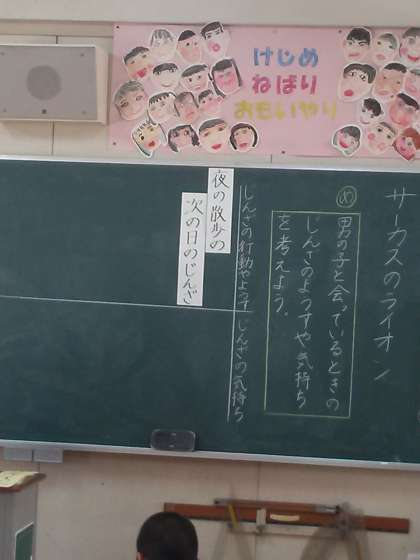 けじめ
ねばり
おもいやり
サーカスのライオン
め
男の子と会っているときの
じんざのようすや気持ち
を考えよう。
じんざの行動やようす
じんざの気持ち
夜の散歩の
次の日のじんざ